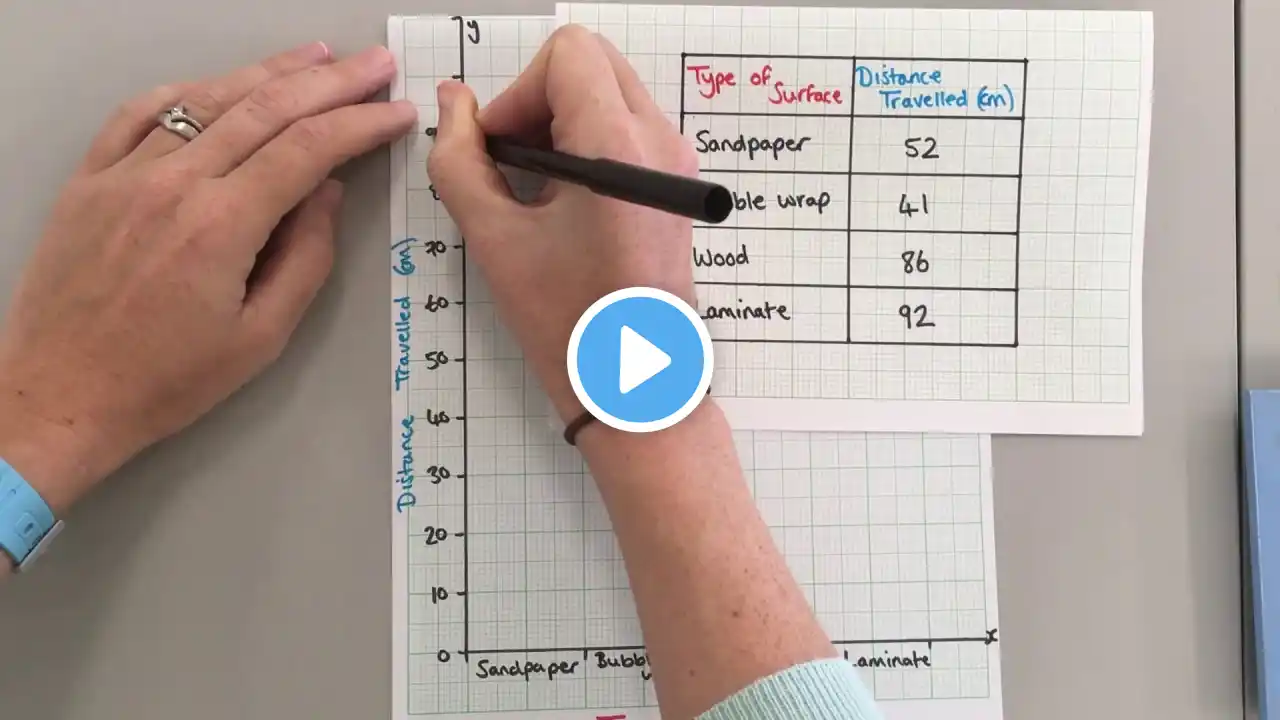 y
Type of
Surface
Distance
Travelled (cm)
Sandpaper
52
ble wrap
41
Wood
86
Laminate
92
Distance Travelled (cm)
70
60
50
40
30
20
10
0
x
Sandpaper
Bubb
Laminate